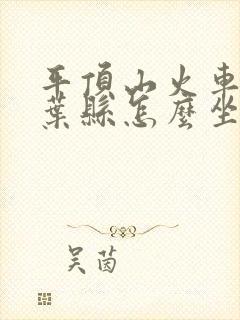 平頂山火車
葉縣怎麼坐
吴茵